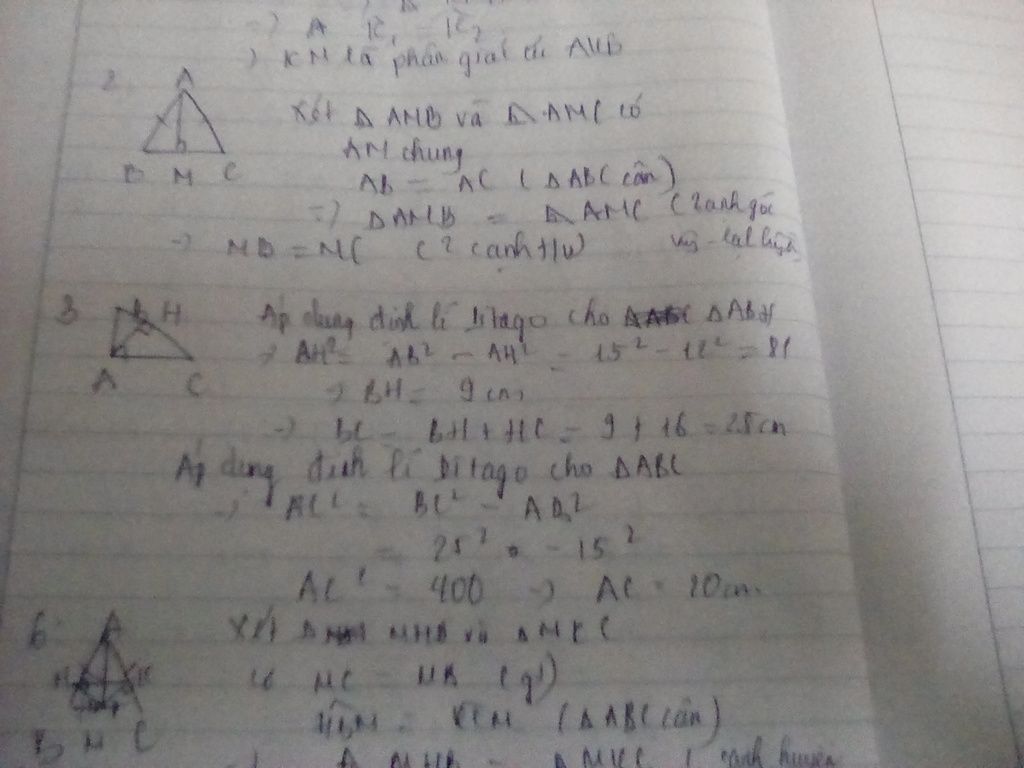 =) A K₁ = K₂
=) KM là phân giác
2
A
B M C
Xét Δ AMB và Δ AMC có
AM chung
AB = AC (ΔABC cân)
=) ΔAMB = ΔAMC
=) MB = MC (2 cạnh t/ư)
3
B H
A C
Áp dụng định lí Pitago cho ΔABH
=) AH² = AB² - AH² = 15² - 12² = 81
=) BH = 9 cm
=) BC = BH + HC = 9 + 16 = 25cm
Áp dụng định lí Pitago cho ΔABC
=) AC² = BC² - AB²
= 25² - 15²
AC² = 400 =) AC = 20cm
6
A
H K
B M C
Xét Δ MHB và Δ MKC
có MC = MB (gt)
HBM = KCM (ΔABC cân)
Δ MHB = ΔMKC (cạnh huyền